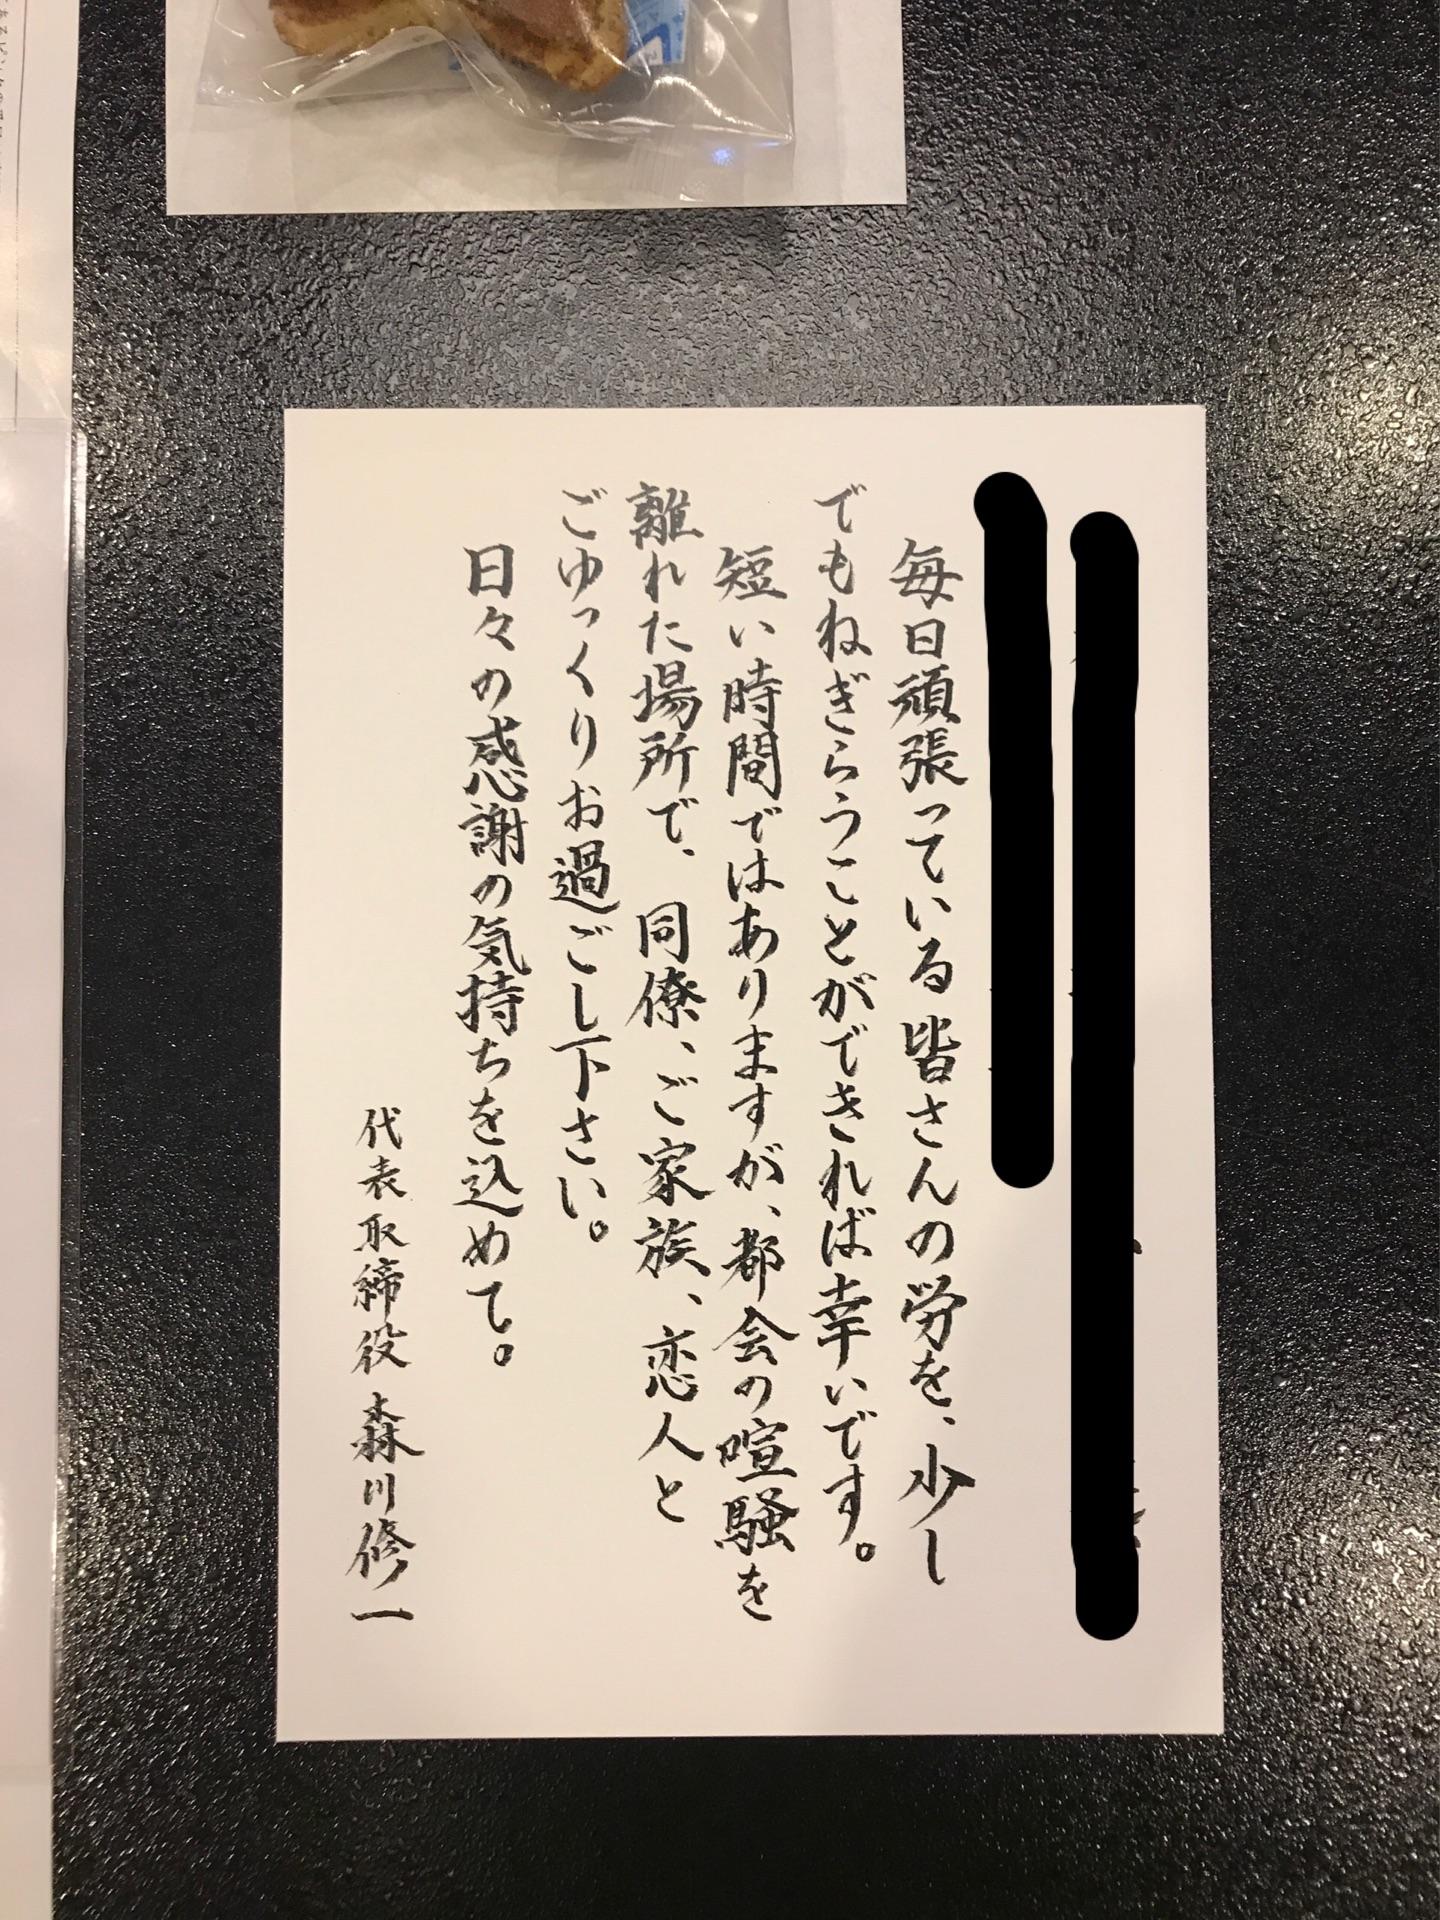 毎日頑張っている皆さんの労を、少し
でもねぎらうことができれば幸いです。
短い時間ではありますが、都会の喧騒を
離れた場所で、同僚、ご家族、恋人と
ごゆっくりお過ごし下さい。
日々の感謝の気持ちを込めて。
代表取締役 森川修一